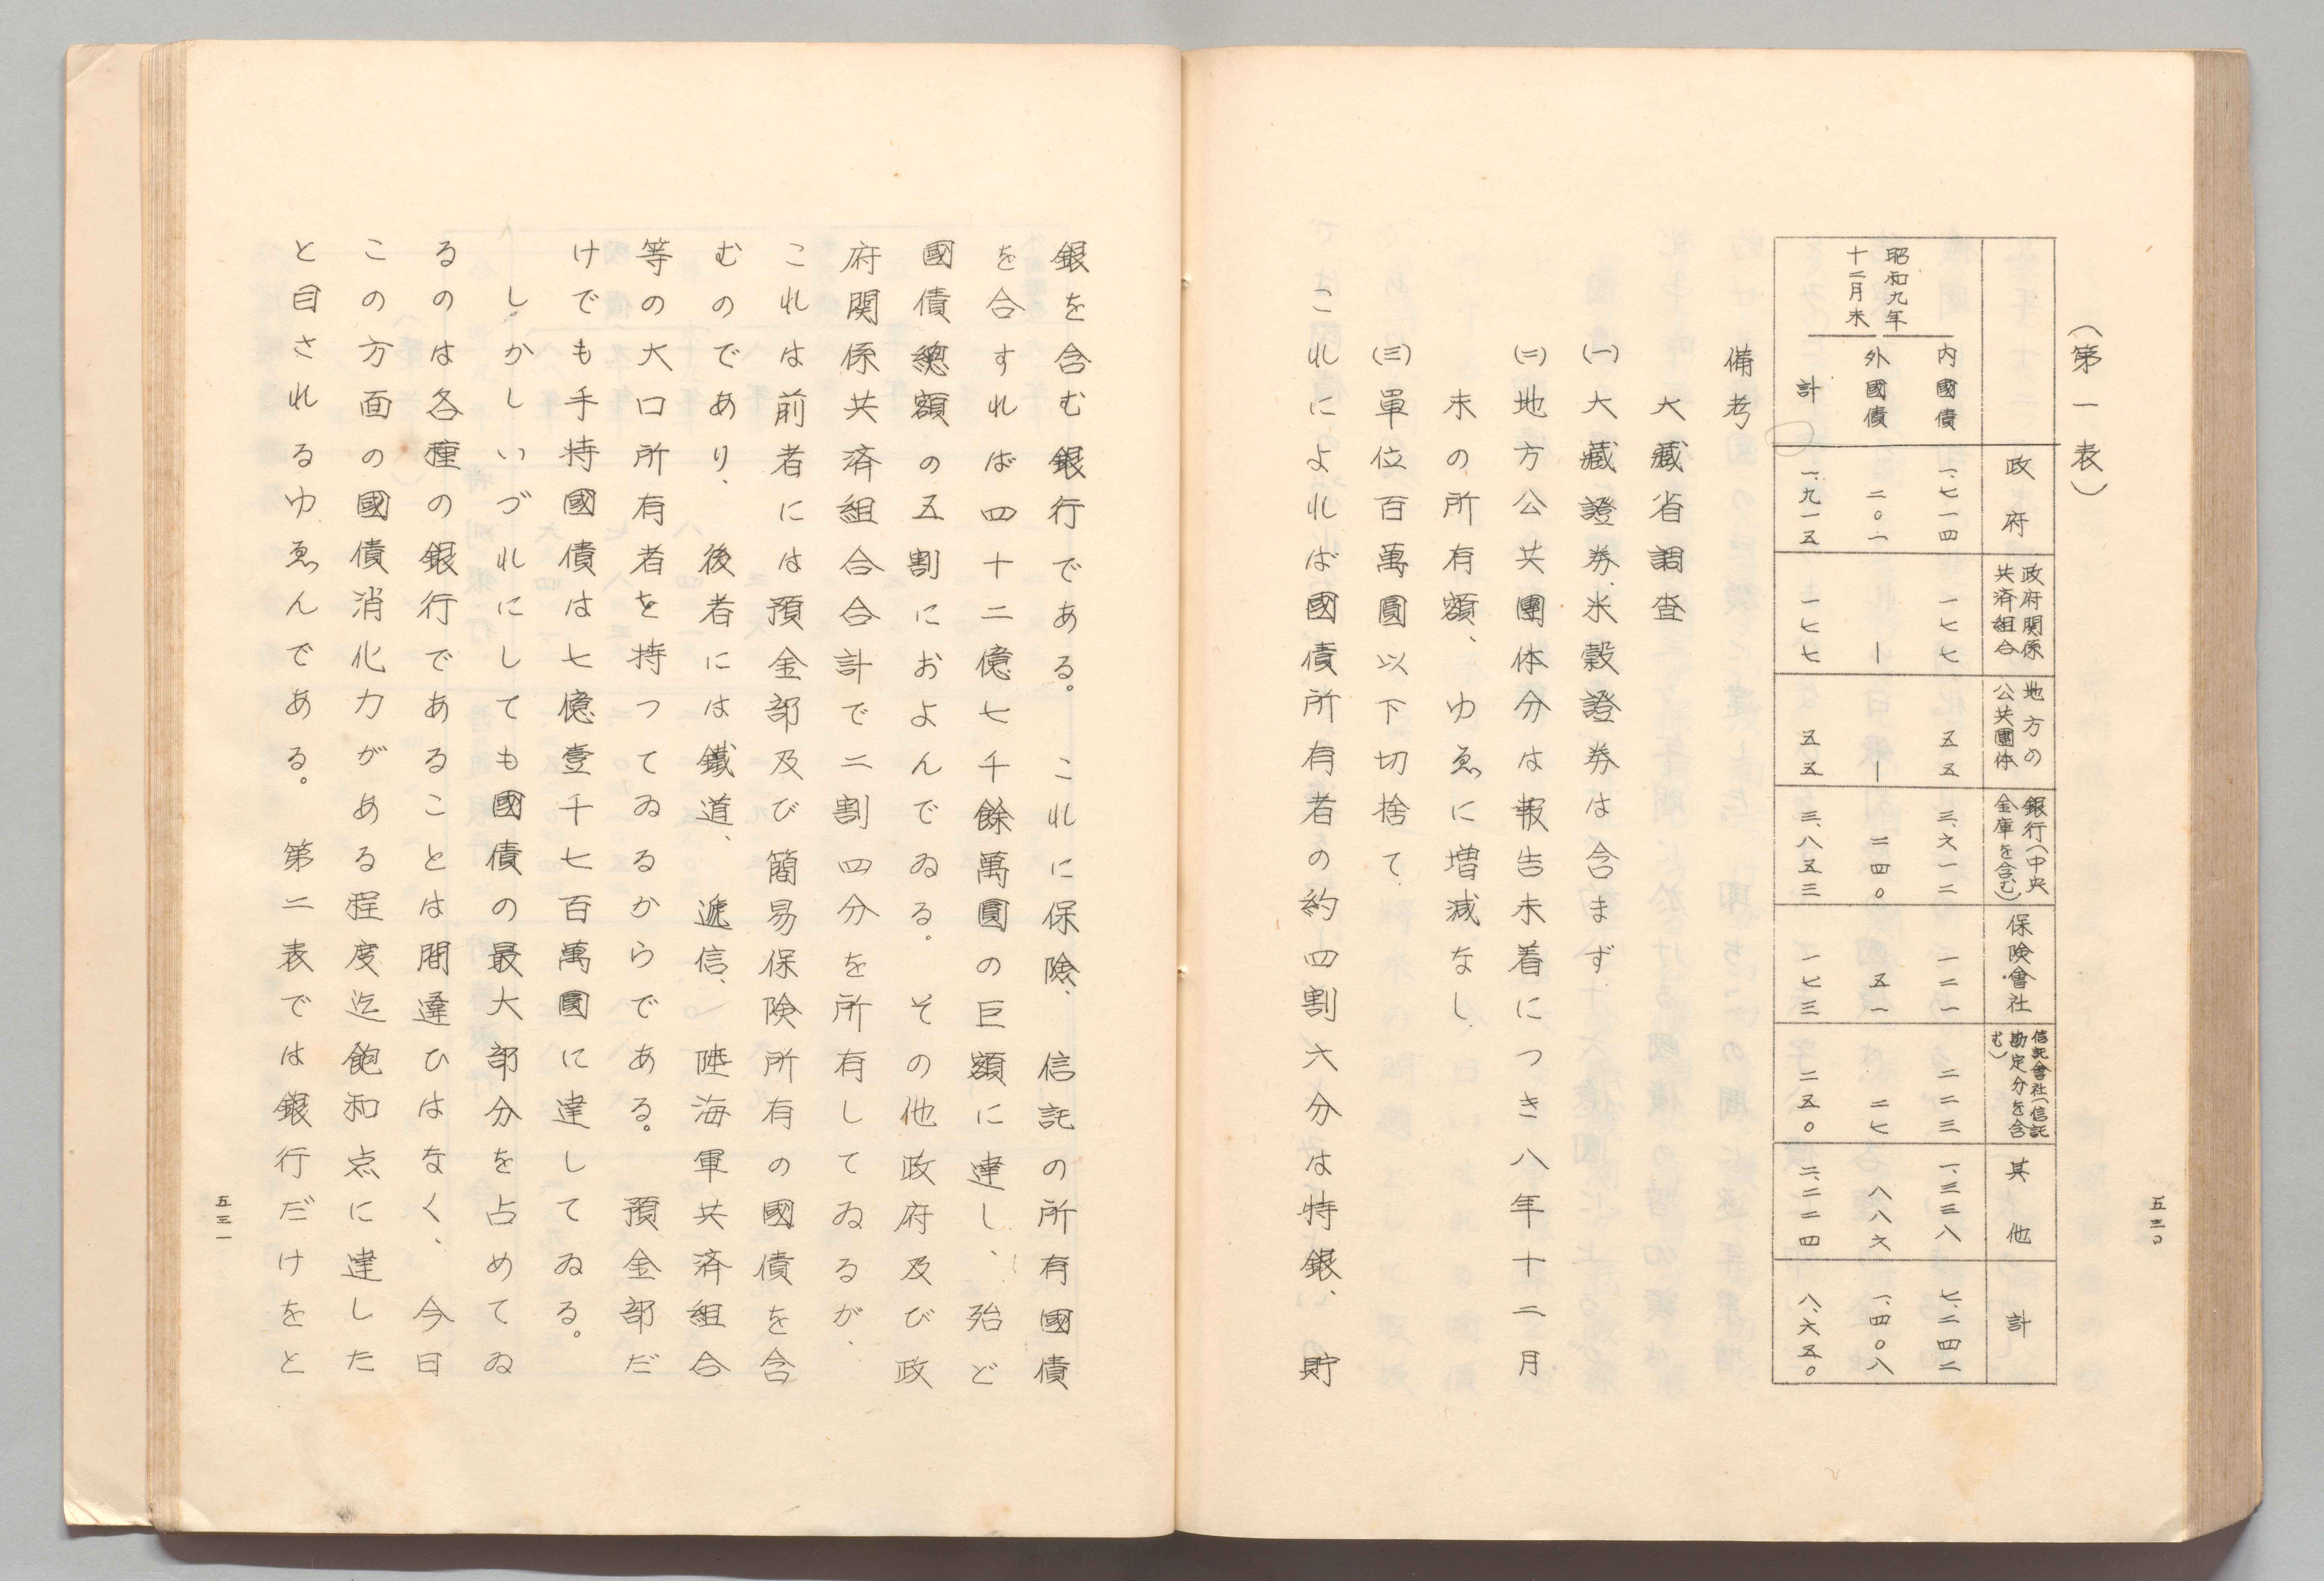 五三〇
(第一表)
政府　政府関係共済組合　地方の公共團体　銀行(中央金庫を含む)　保険會社　信託會社(信託勘定分を含む)　其他　計
昭和九年
十二月末
内國債　一、七一四　一七七　五五　三、六一二　一二一　二二三　一、三三八　七、二四二
外國債　二〇一　ー　ー　二四〇　五一　二七　八八六　一、四〇八
計　一、九一五　一七七　五五　三、八五三　一七三　二五〇　二、二二四　八、六五〇
備考
大藏省調査
(一)大藏證券、米穀證券は含まず
(二)地方公共團体分は報告未着につき八年十二月
末の所有額、ゆゑに増減なし
(三)單位百萬圓以下切捨て
これによれば國債所有者の約四割六分は特銀、貯
銀を含む銀行である。これに保険、信託の所有國債
を合すれば四十二億七千餘萬圓の巨額に達し、殆ど
國債總額の五割におよんでゐる。その他政府及び政
府関係共済組合合計で二割四分を所有してゐるが、
これは前者には預金部及び簡易保険所有の國債を含
むのであり、後者には鐵道、遞信、陸海軍共済組合
等の大口所有者を持つてゐるからである。預金部だ
けでも手持國債は七億壹千七百萬圓に達してゐる。
しかしいづれにしても國債の最大部分を占めてゐ
るのは各種の銀行であることは間違ひはなく、今日
この方面の國債消化力がある程度迄飽和点に達した
と目されるゆゑんである。第二表では銀行だけをと
五三一